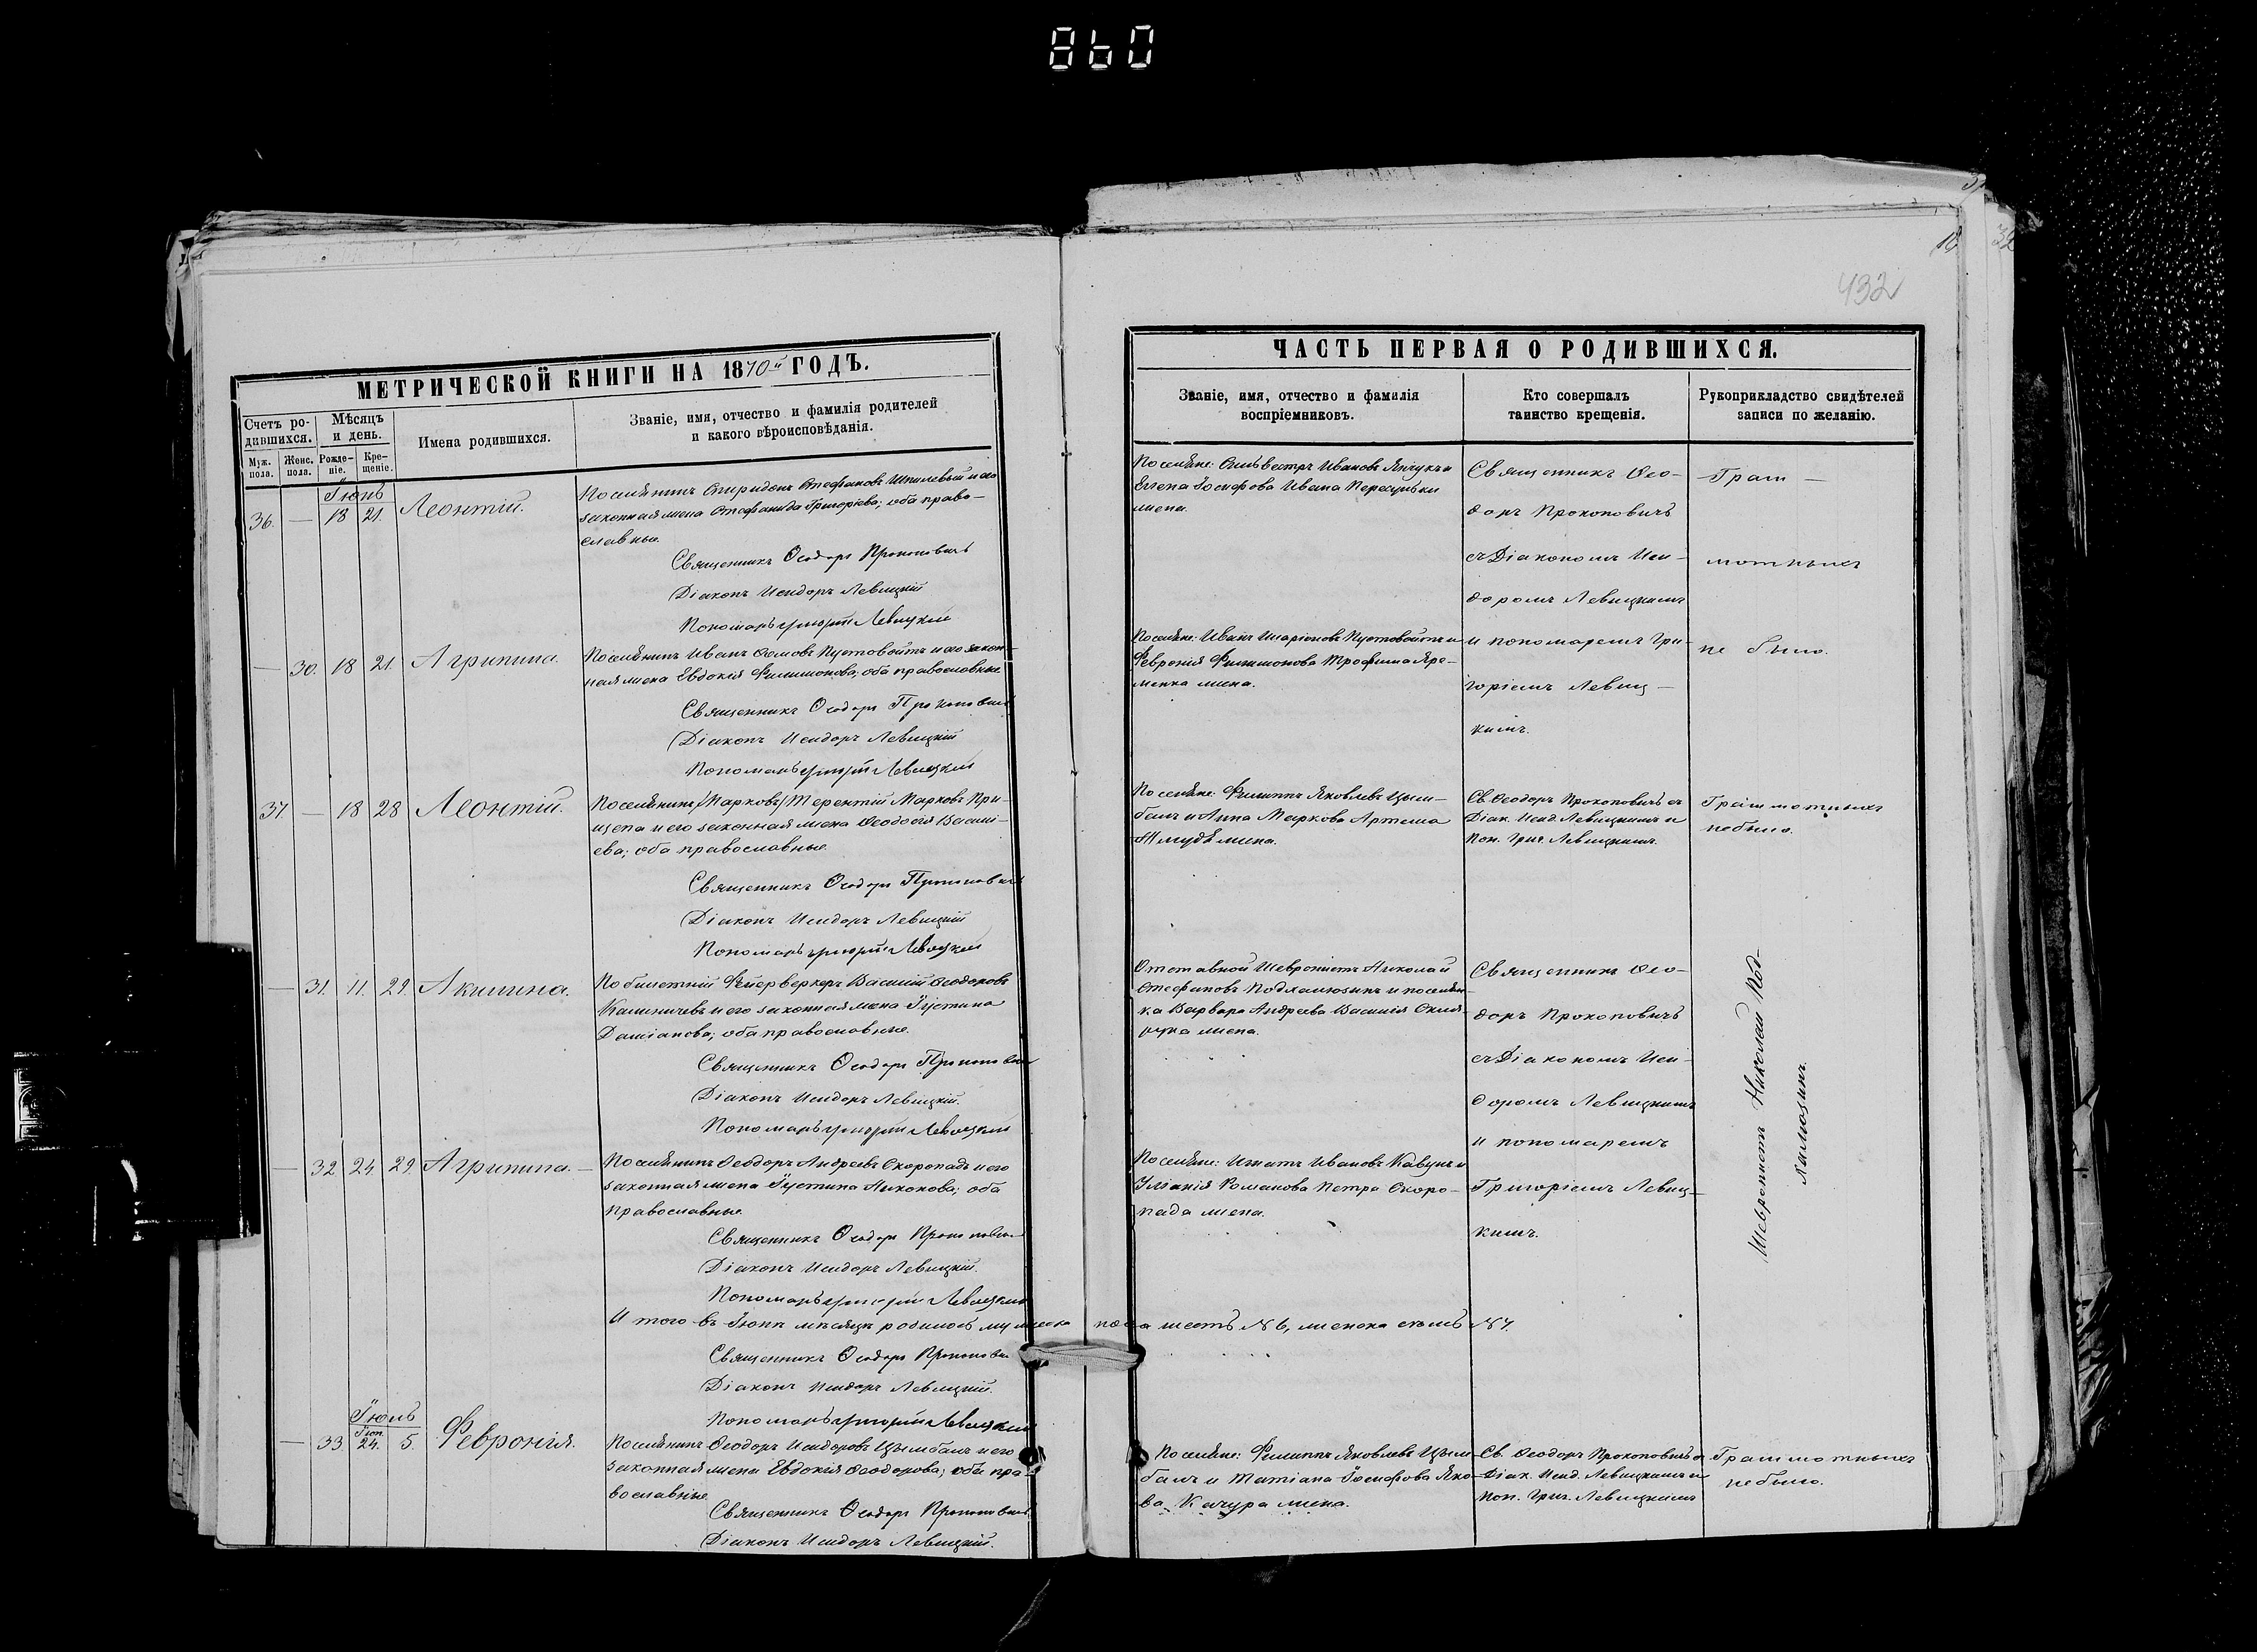 860
18
32
432
МЕТРИЧЕСКОЙ КНИГИ НА 1870й ГОДЪ.
Счетъ ро-
дившихся.
Мѣсяцъ
и день.
Имена родившихся.
Званіе, имя, отчество и фамилія родителей
и какого вѣроисповѣданія.
Муж.
пола.
Женс.
пола.
Рожде-
ніе.
Кре-
щеніе.
Іюнь
36. — 18 21. Леонтій.
Поселянинъ Спиридонъ Стефановъ Шпилевый и его
законная жена Стефанида Григоріева; оба право-
славные.
Священникъ Ѳеодоръ Прокоповичъ
Діаконъ Исидоръ Левицкій
Пономарь Григорій Левицкій
— 30. 18 21. Агрипина.
Поселянинъ Иванъ Пустовойтъ и его закон-
ная жена Евдокія Филимонова; оба православные
Священникъ Ѳеодоръ Прокоповичъ
Діаконъ Исидоръ Левицкій
Пономарь Григорій Левицкій
37. — 18 28 Леонтій.
Поселянинъ /Марковъ/ Терентій Марковъ При-
щепа и его законная жена Ѳеодосія Васи-
ева; оба православные.
Священникъ Ѳеодоръ Прокоповичъ
Діаконъ Исидоръ Левицкій
Пономарь Григорій Левицкій
— 31. 11. 29. Акилина.
Побилетній Фейерверкеръ Василій Ѳеодоровъ
Калиничевъ и его законная жена Іустина
Даміанова; оба православные.
Священникъ Ѳеодоръ Прокоповичъ
Діаконъ Исидоръ Левицкій.
Пономарь Григорій Левицкій
— 32 24. 29. Агрипина. —
Поселянинъ Ѳеодоръ Андреевъ Скоропадъ и его
законная жена Іустина Никонова; оба
православные.
Священникъ Ѳеодоръ Прокоповичъ
Діаконъ Исидоръ Левицкій.
Пономарь Григорій Левицкій
И того въ Іюнѣ мѣсяцѣ родилось мужеска пола шесть №6, женска семь №7.
Священникъ Ѳеодоръ Прокоповичъ
Діаконъ Исидоръ Левицкій.
Пономарь Григорій Левицкій
Іюль
— 33 Іюн. 24. 5. Февронія.
Поселянинъ Ѳеодоръ Исидоровъ Цымбалъ и его
законная жена Евдокія Ѳеодорова; оба пра-
вославные.
Священникъ Ѳеодоръ Прокоповичъ
Діаконъ Исидоръ Левицкій.
ЧАСТЬ ПЕРВАЯ О РОДИВШИХСЯ.
Званіе, имя, отчество и фамилія
воспріемниковъ.
Кто совершалъ
таинство крещенія.
Рукоприкладство свидѣтелей
записи по желанію.
Поселяне: Сильвестръ Ивановъ Янчукъ и
Елена Іосифова Ивана Пересуньки
жена.
Священникъ Ѳео-
доръ Прокоповичъ
съ Діакономъ Иси-
доромъ Левицкимъ
и пономаремъ Гри-
горіемъ Левиц-
кимъ.
Грам-
мотныхъ
не было.
Поселяне: Иванъ Иларіоновъ Пустовойтъ и
Февронія Филимонова Трофима Яре-
менка жена.
Поселяне: Филиппъ Яковлевъ Цым-
балъ и Анна Маркова Артема
Шмудѣ жена.
Св. Ѳеодоръ Прокоповичъ съ
Діак. Исид. Левицкимъ и
Пон. Григ. Левицкимъ.
Грамотныхъ
не было.
Отставной Шевронистъ Николай
Стефановъ Подкалюзинъ и поселян-
ка Варвара Андреева Василія
жена.
Священникъ Ѳео-
доръ Прокоповичъ
съ Діакономъ Иси-
доромъ Левицкимъ
и пономаремъ
Григоріемъ Левиц-
кимъ.
Шевронистъ Николай Под-
калюзинъ.
Поселяне: Игнатъ Ивановъ Кавунъ и
Уліанія Романова Петра Скоро-
пада жена.
Поселяне: Филиппъ Яковлевъ Цым-
балъ и Татіана Іосифова Яко-
ва Качура жена.
Св. Ѳеодоръ Прокоповичъ съ
Діак. Исид. Левицкимъ и
Пон. Григ. Левицкимъ
Грамотныхъ
не было.